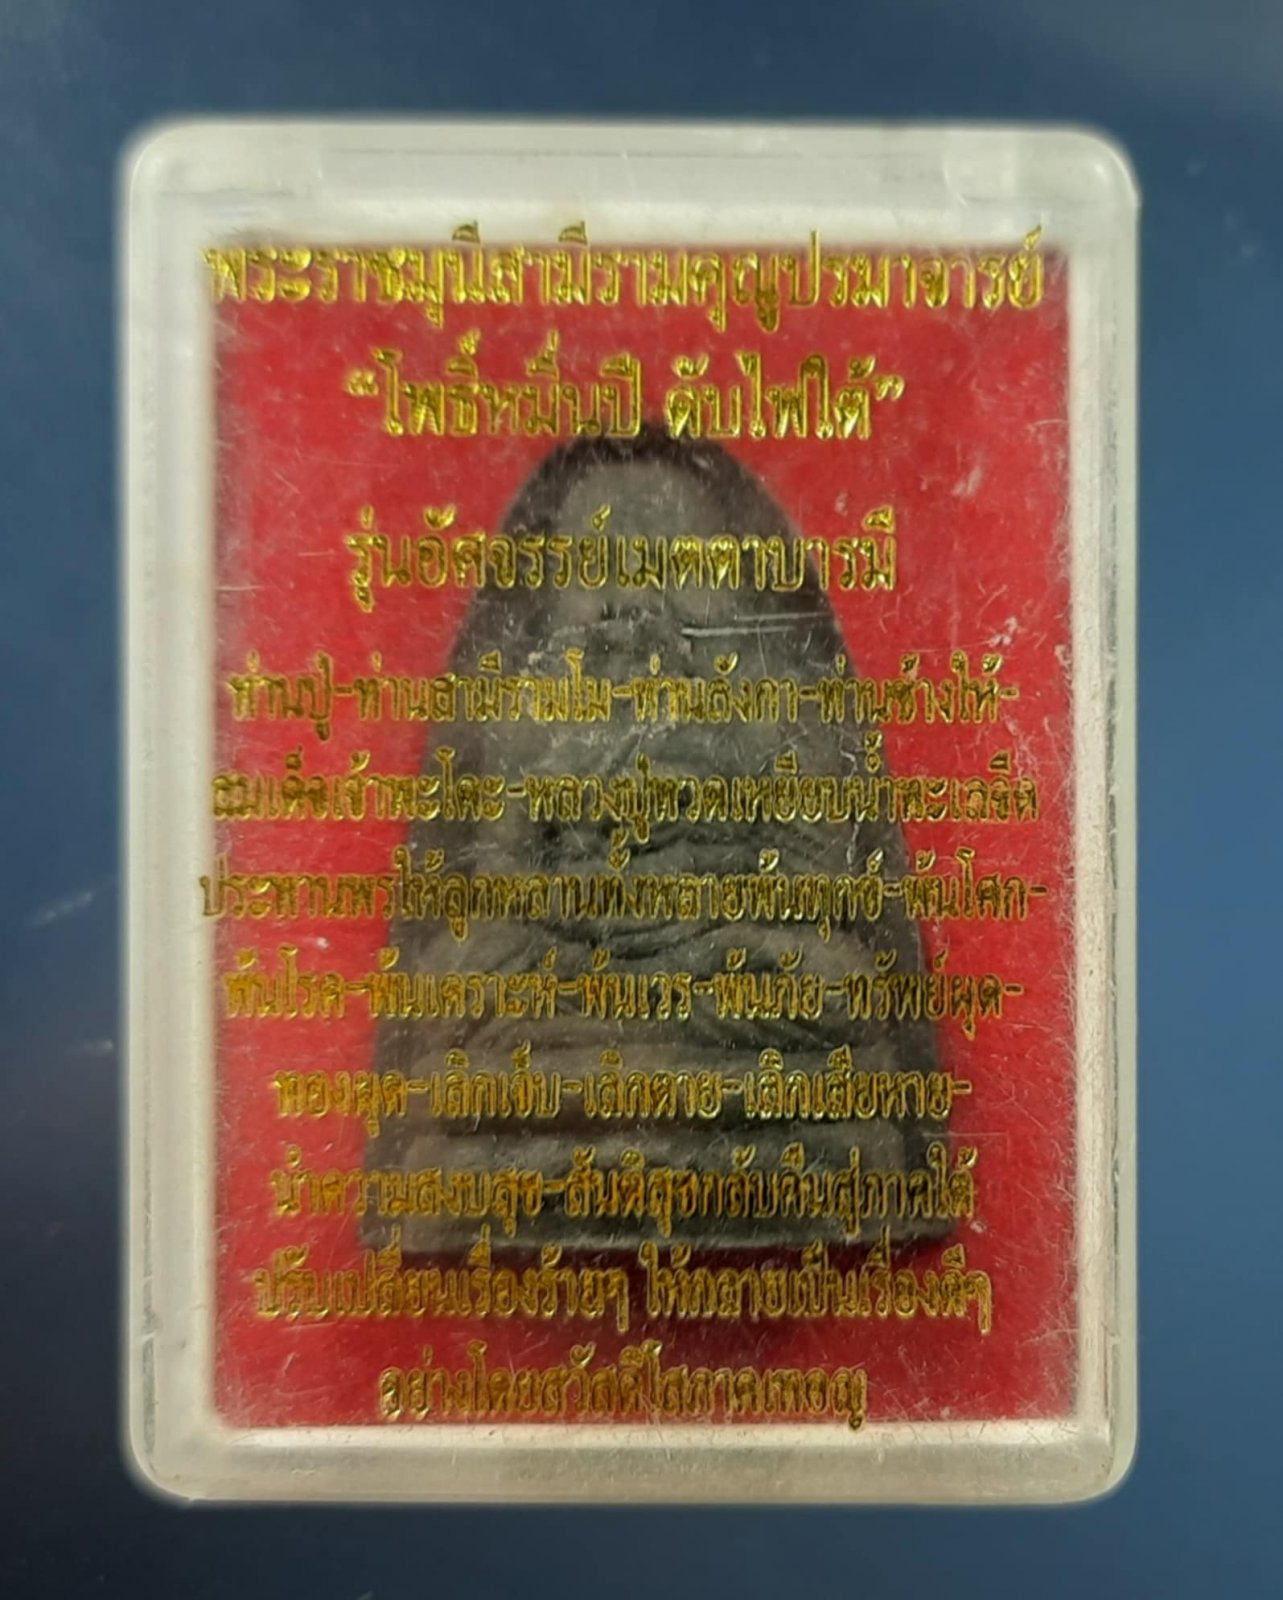 พระราชมุนีสามีรามคุณูปรมาจารย์
“โพธิ์หมื่นปี ดับไฟใต้”
รุ่นอัศจรรย์เมตตาบารมี
ท่านปู่-ท่านสามีรามโม-ท่านลังกา-ท่านช้างให้-
สมเด็จเจ้าพะโคะ-หลวงปู่ทวดเหยียบน้ำทะเลจืด
ประทานพรให้ลูกหลานทั้งหลายพ้นทุกข์-พ้นโศก-
พ้นโรค-พ้นเคราะห์-พ้นเวร-พ้นภัย-ทรัพย์ผุด-
ทองผุด-เลิกเจ็บ-เลิกตาย-เลิกเสียหาย-
นำความสงบสุข-สันติสุขกลับคืนสู่ภาคใต้
ปรับเปลี่ยนเรื่องร้ายๆ ให้กลายเป็นเรื่องดีๆ
อย่างโดยสวัสดีโสภาคเทอญ